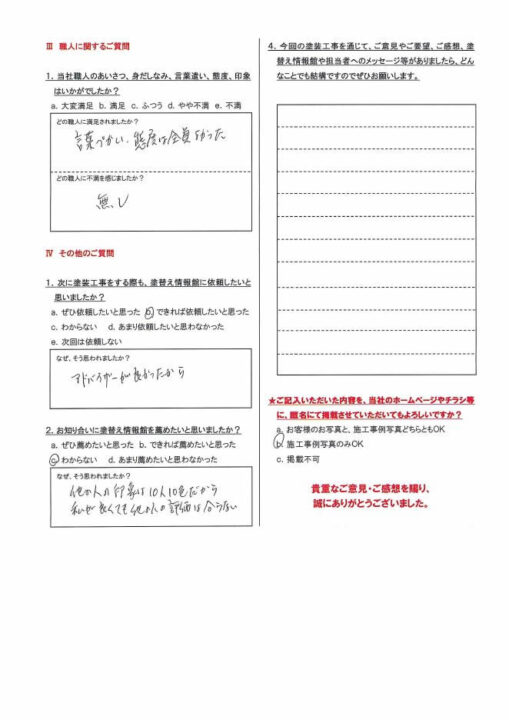 Ⅲ 職人に関するご質問
1. 当社職人のあいさつ、身だしなみ、言葉遣い、態度、印象
はいかがでしたか？
a. 大変満足 b. 満足 c. ふつう d. やや不満 e. 不満
どの職人に満足されましたか？
言葉づかい、態度は全員良かった
どの職人に不満を感じましたか？
無し
Ⅳ その他のご質問
1. 次に塗装工事をする際も、塗替え情報館に依頼したいと
思いましたか？
a. ぜひ依頼したいと思った b. できれば依頼したいと思った
c. わからない d. あまり依頼したいと思わなかった
e. 次回は依頼しない
なぜ、そう思われましたか？
アドバイザーが良かったから
2. お知り合いに塗替え情報館を薦めたいと思いましたか？
a. ぜひ薦めたいと思った b. できれば薦めたいと思った
c. わからない d. あまり薦めたいと思わなかった
なぜ、そう思われましたか？
他の人の印象は10人10色だから
私が良くても他の人の評価は合らない
4. 今回の塗装工事を通じて、ご意見やご要望、ご感想、塗
替え情報館や担当者へのメッセージ等がありましたら、どん
なことでも結構ですのでぜひお願いします。
★ご記入いただいた内容を、当社のホームページやチラシ等
に、匿名にて掲載させていただいてもよろしいですか？
a. お客様のお写真と、施工事例写真どちらともOK
b. 施工事例写真のみOK
c. 掲載不可
貴重なご意見・ご感想を賜り、
誠にありがとうございました。